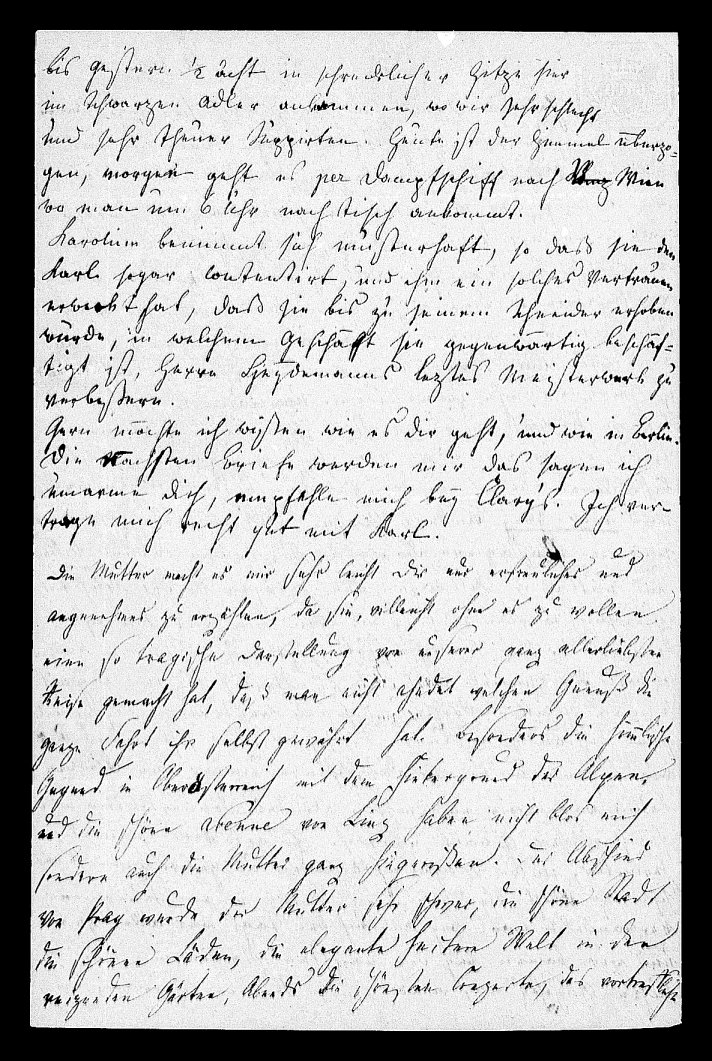 bis gestern ½ acht in schrecklicher Hitze hier
im Schwarzen Adler ankammen, wo wir sehr schlecht
und sehr theuer Suppirten. Heute ist der Himmel überzo-
gen, morgen geht es per Dampfschiff nach Wien
wo man um 6 Uhr nach tisch ankommt.
Karoline benimmt sich musterhaft, so dass sie den
Karl sogar contentirt, und ihm ein solches Vertrauen
erweckt hat, dass sie bis zu seinem Schneider erhoben
wurde, in welchem Geschäfft sie gegenwärtig beschäf-
tigt ist, Herrn Heydemanns leztes Meisterwerk zu
verbessern.
Gern möchte ich wissen wie es dir geht, und wie in Berlin.
Die nächsten Briefe werden mir das sagen ich
umarme dich, empfehle mich bey Clary's. Ich ver-
trage mich recht gut mit Karl.
Die Mutter macht es mir sehr leicht dir nur erfreuliches und
angenehmes zu erzählen, da sie, villeicht ohne es zu wollen
eine so tragische Darstellung von unserer ganz allerliebsten
Reise gemacht hat, daß man nicht ahndet welchen Genuß die
ganze Fahrt ihr selbst gewährt hat. Besonders die himmlische
Gegend in Oberösterreich mit dem Hintergrund der Alpen,
und die schöne avenue von Linz haben nicht blos mich
sondern auch die Mutter ganz hingerissen. Der Abschied
von Prag wurde der Mutter sehr schwer, die schöne Stadt
die schönen Läden, die elegante heitere Welt in den
reizenden Gärten, Abends die schönsten Conzerte, das vortreffliche